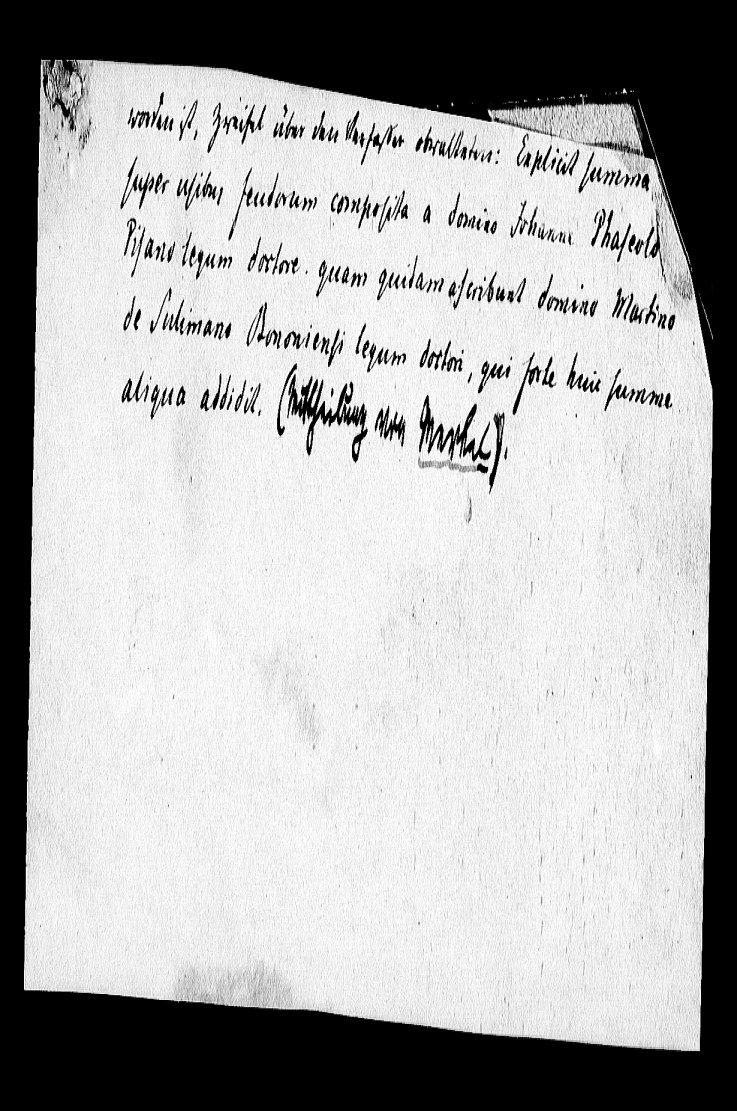 worden ist, Zweifel über den Verfasser obwalteten: Explicit summa
super usibus feudorum composita a domino Johanne Phaseolo
Pisano legum doctore. quam quidam ascribunt domino Martino
de Sulimano Bononiensi legum doctori, qui forte huic summe
aliqua addidit. (Mittheilung von Merkel).